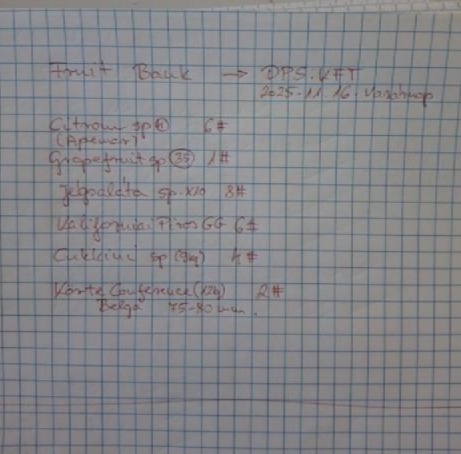 Fruit Bank → DPS.KFT
2025.11.16. Vasárnap
Citrom sp ① 6#
(Apemar)
Grapefruit sp (35) 1#
Jégsaláta sp. x10 8#
Kaliforniai Piros GG 6#
Cukkini sp (5kg) 4#
Körte Conference (12kg) 2#
Belga 75-80 mm.